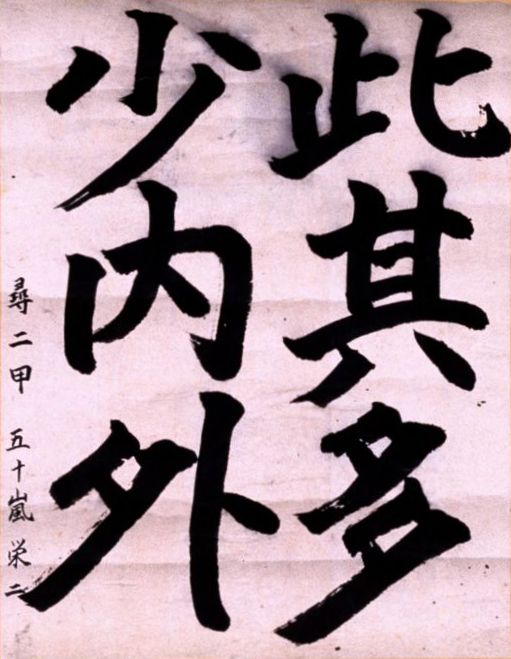 此其多
少内外
尋二甲 五十嵐栄二